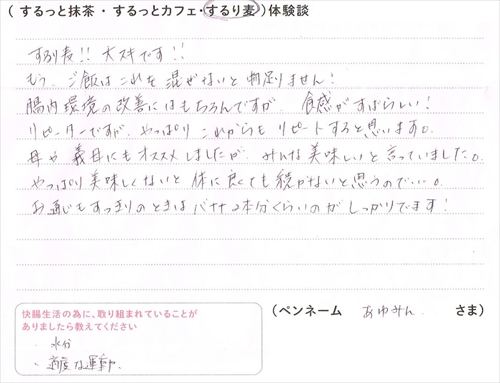 (するっと抹茶・するっとカフェ・するり麦)体験談
するり麦!! 大スキです!!
もう、ご飯はこれを混ぜないと物足りません!
腸内環境の改善にはもちろんですが、食感がすばらしい!
リピーターですが、やっぱりこれからもリピートすると思います。
母や義母にもオススメしましたが、みんな美味しいと言っていました。
やっぱり美味しくないと体に良くても続かないと思うので…。
お通じもすっきりのときはバナナ2本分くらいのがしっかりでます!
快腸生活の為に、取り組まれていることが
ありましたら教えてください
・水分
・適度な運動.
(ペンネーム あゆみん. さま)